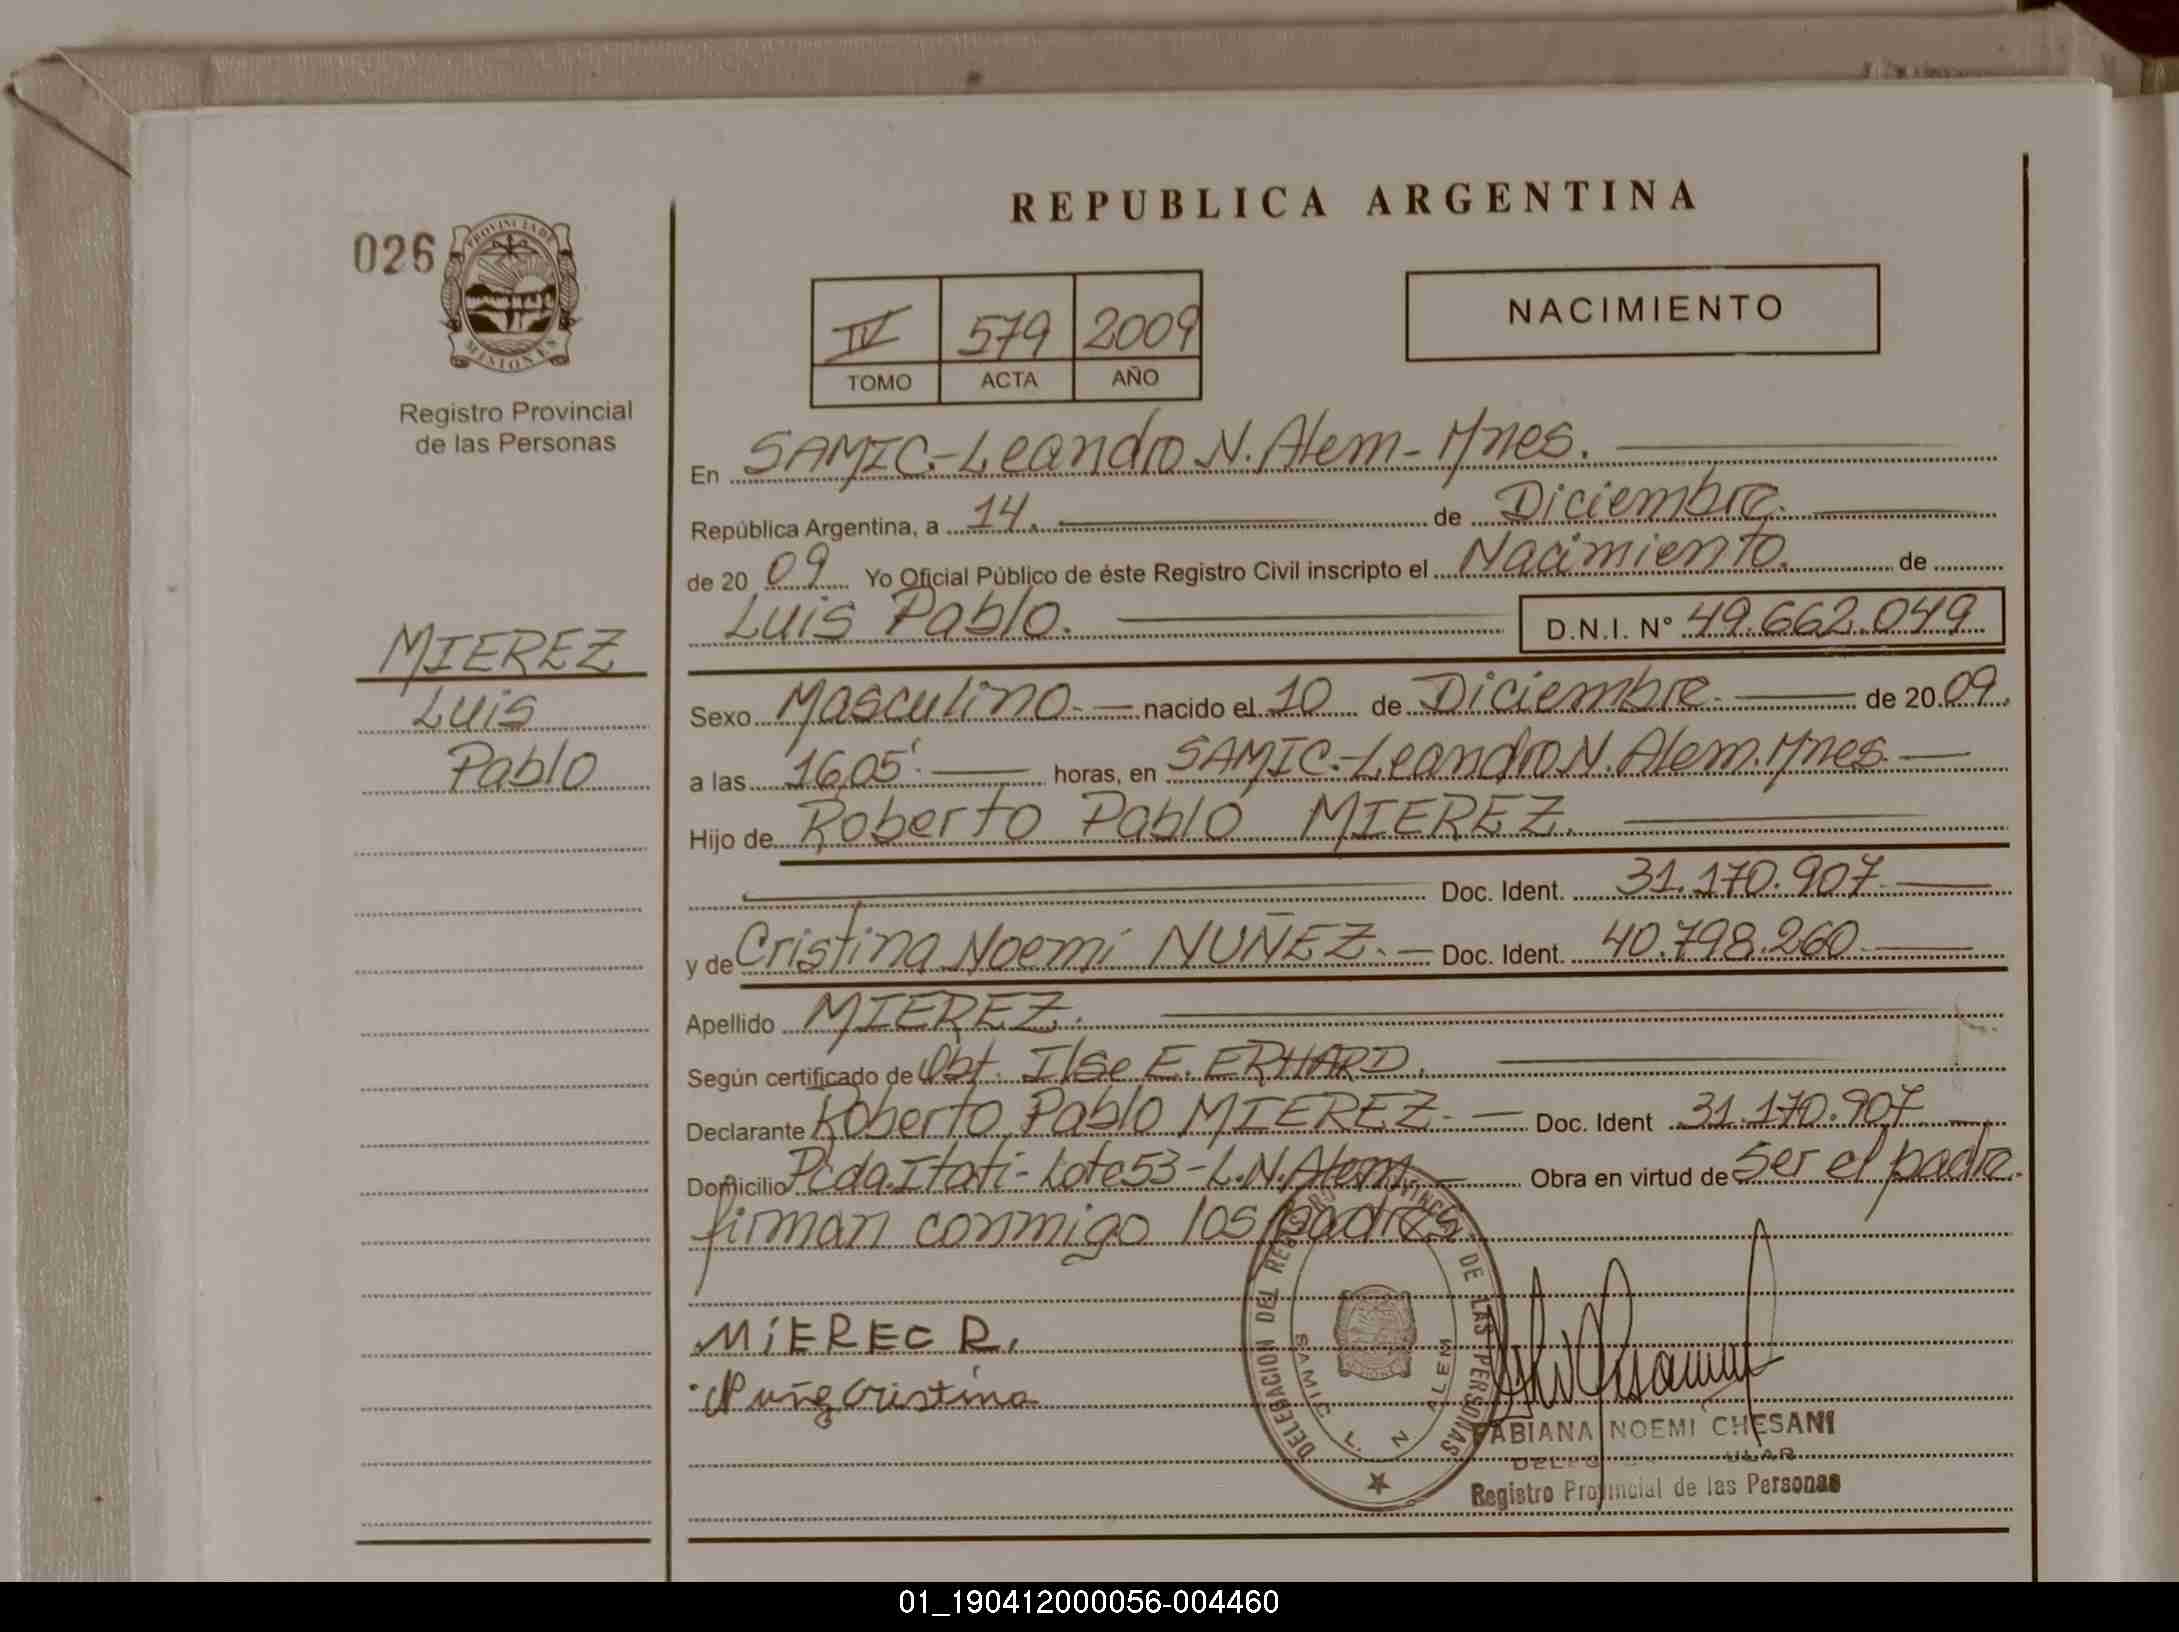 REPUBLICA ARGENTINA
026
PROVINCIA DE
MISIONES
Registro Provincial
de las Personas
IV 579 2009
TOMO ACTA AÑO
NACIMIENTO
En SAMIC.-Leandro N. Alem-Mnes.
República Argentina, a 14. de Diciembre.
de 20 09 Yo Oficial Público de éste Registro Civil inscripto el Nacimiento. de
Luis Pablo. D.N.I. N° 49.662.049
MIEREZ
Luis
Pablo
Sexo Masculino.- nacido el 10 de Diciembre. de 20 09.
a las 16,05'. horas, en SAMIC.-Leandro N. Alem.Mnes.
Hijo de Roberto Pablo MIEREZ.
Doc. Ident. 31.170.907.
y de Cristina Noemí NUÑEZ.- Doc. Ident. 40.798.260
Apellido MIEREZ.
Según certificado de Obt. Ilse E. ERHARD.
Declarante Roberto Pablo MIEREZ.- Doc. Ident 31.170.907
Domicilio Pcda.Itati-Lote53-L.N.Alem Obra en virtud de Ser el padre.
firman conmigo los padres
MiEREC R.
Nuñez Cristina
DELEGACION DEL REGISTRO PROVINCIAL DE LAS PERSONAS
SAMIC L. N. ALEM
FABIANA NOEMI CHESANI
Registro Provincial de las Personas
01_190412000056-004460